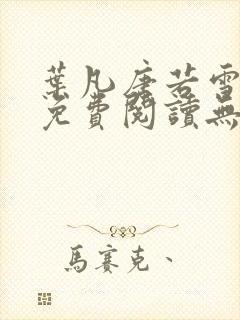 葉凡唐若雪
免費閱讀無
馬賽克、